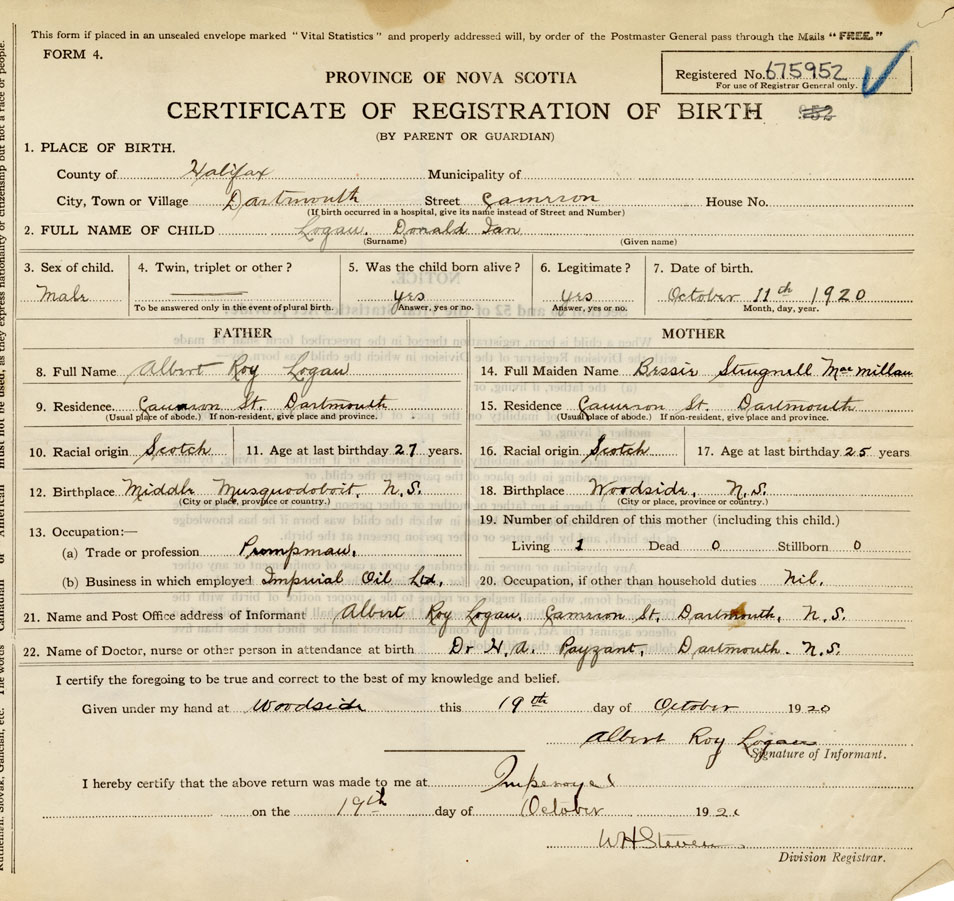 This form if placed in an unsealed envelope marked "Vital Statistics" and properly addressed will, by order of the Postmaster General pass through the Mails "FREE."
FORM 4.
Registered No. 675952
For use of Registrar General only.
PROVINCE OF NOVA SCOTIA
CERTIFICATE OF REGISTRATION OF BIRTH
(BY PARENT OR GUARDIAN)
1. PLACE OF BIRTH.
County of Halifax Municipality of
City, Town or Village Dartmouth Street Cameron House No.
(If birth occurred in a hospital, give its name instead of Street and Number)
2. FULL NAME OF CHILD Logan, Donald Ian
(Surname) (Given name)
3. Sex of child. 4. Twin, triplet or other? 5. Was the child born alive? 6. Legitimate? 7. Date of birth.
Male yes yes October 11th 1920
To be answered only in the event of plural birth. Answer, yes or no. Answer, yes or no. Month, day, year.
FATHER MOTHER
8. Full Name Albert Roy Logan 14. Full Maiden Name Bessie Macmillan
9. Residence. Cameron St. Dartmouth 15. Residence Cameron St. Dartmouth
(Usual place of abode.) If non-resident, give place and province. (Usual place of abode.) If non-resident, give place and province.
10. Racial origin Scotch 11. Age at last birthday 27 years. 16. Racial origin Scotch 17. Age at last birthday 25 years
12. Birthplace Middle Musquodoboit, N.S. 18. Birthplace Woodside, N.S.
(City or place, province or country.) (City or place, province or country.)
13. Occupation:— 19. Number of children of this mother (including this child.)
(a) Trade or profession Pumpman. Living 1 Dead 0 Stillborn 0
(b) Business in which employed Imperial Oil Ltd. 20. Occupation, if other than household duties Nil.
21. Name and Post Office address of Informant Albert Roy Logan, Cameron St. Dartmouth, N.S.
22. Name of Doctor, nurse or other person in attendance at birth Dr H.A. Payzant, Dartmouth. N.S.
I certify the foregoing to be true and correct to the best of my knowledge and belief.
Given under my hand at Woodside this 19th day of October 1920
Albert Roy Logan
Signature of Informant.
I hereby certify that the above return was made to me at Imperoyal
on the 19th day of October 192
W H Steven
Division Registrar.